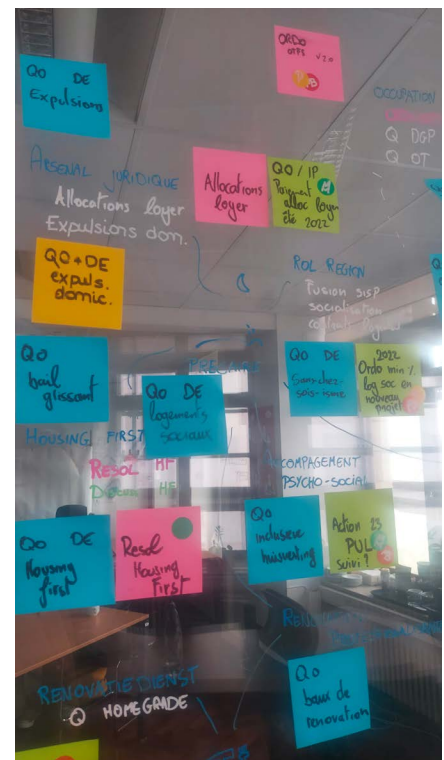 ORDO
QO DE
Expulsions
OCCUPATION
Q DGP
Q OT
ARSENAL JURIDIQUE
Allocations loyer
Expulsions dom.
Allocations
loyer
QO / IP
Paiement
alloc loyer
été 2022
QO + DE
expuls.
domic.
ROL REGION
Fusion SISP
socialisation
QO
bail
glissant
QO DE
logements
sociaux
QO DE
Sans-chez-
sois-isme
2022
Ordo min %
log soc en
nouveau
projet
HOUSING FIRST
RESOL HF
HF
PSYCHO-SOCIAL
QO DE
Housing
First
Resol
Housing
First
QO
inclusieve
huisvesting
Action 23
PUL
suivi ?
RENOVATIEDIENST
Q HOMEGRADE
QO
baux de
renovation